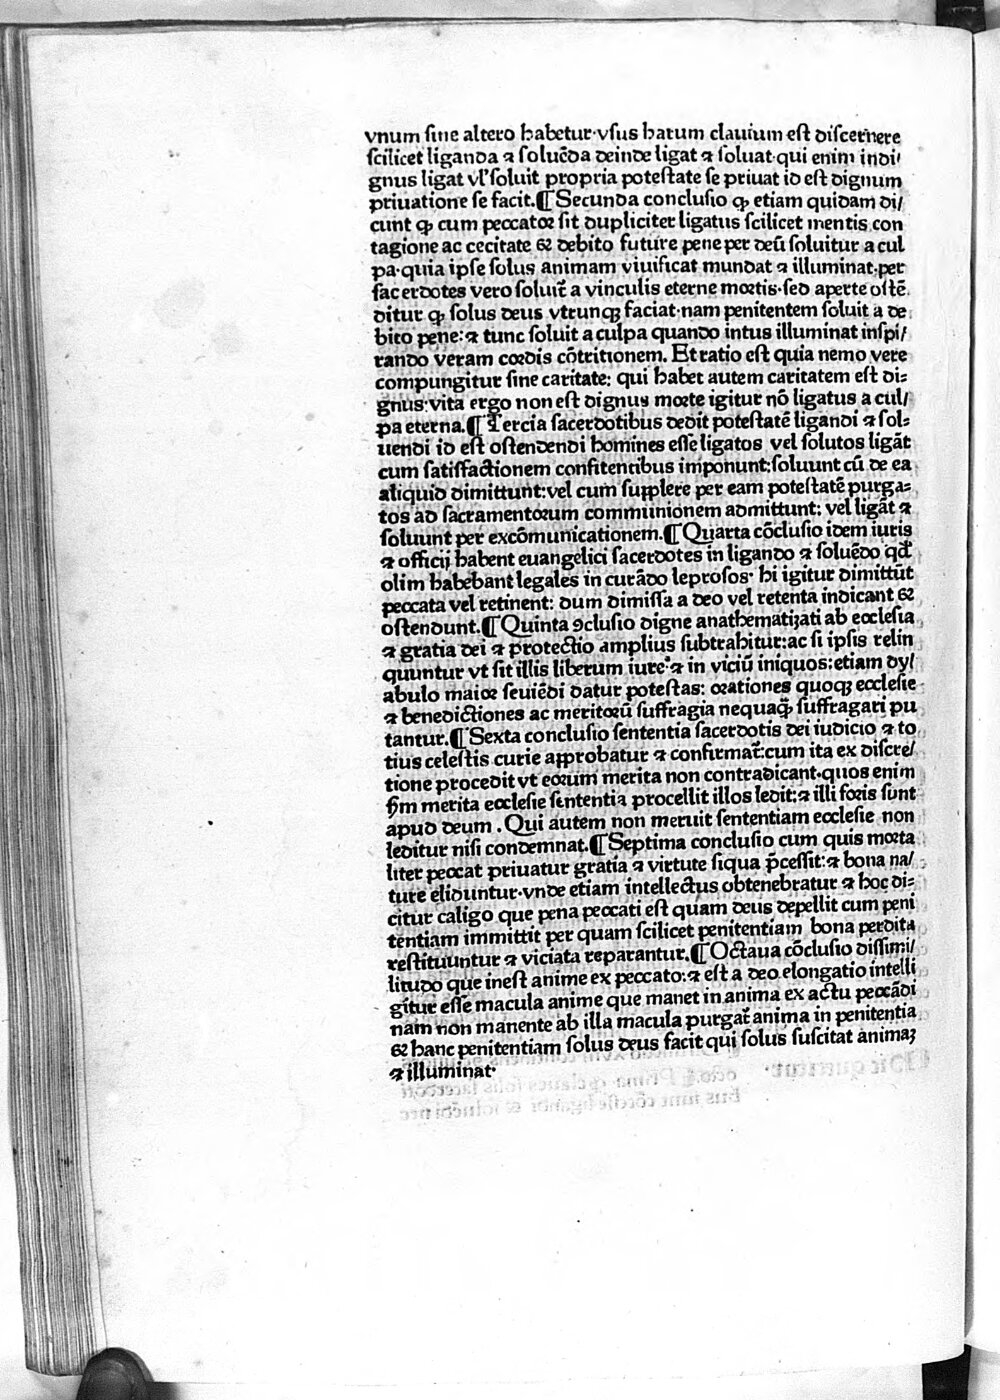 vnum sine altero habetur·vsus harum clauium est discernere
scilicet liganda ⁊ soluēda deinde ligat ⁊ soluat·qui enim indi/
gnus ligat vl' soluit propria potestate se priuat id est dignum
priuatione se facit.¶Secunda conclusio ꝙ etiam quidam di/
cunt ꝙ cum peccator sit dupliciter ligatus scilicet mentis con
tagione ac cecitate ⁊ debito future pene per deū soluitur a cul
pa·quia ipse solus animam viuificat mundat ⁊ illuminat·per
sacerdotes vero soluit̃ a vinculis eterne mortis·sed aperte ostē
ditur ꝙ solus deus vtrunqꝫ faciat·nam penitentem soluit a de
bito pene:⁊ tunc soluit a culpa quando intus illuminat inspi/
rando veram cordis cōtritionem. Et ratio est quia nemo vere
compungitur sine caritate: qui habet autem caritatem est di=
gnus·vita ergo non est dignus morte igitur nō ligatus a cul/
pa eterna.¶Tercia sacerdotibus dedit potestatē ligandi ⁊ sol=
uendi id est ostendendi homines esse ligatos vel solutos ligāt
cum satisfactionem confitentibus imponunt:soluunt cū de ea
aliquid dimittunt:vel cum supplere per eam potestatē purga=
tos ad sacramentorum communionem admittunt: vel ligāt ⁊
soluunt per excōmunicationem.¶Quarta cōclusio idem iuris
⁊ officij habent euangelici sacerdotes in ligando ⁊ soluēdo qd'
olim habebant legales in curādo leprosos· hi igitur dimittūt
peccata vel retinent: dum dimissa a deo vel retenta indicant ⁊
ostendunt.¶Quinta ꝯclusio digne anathematizati ab ecclesia
⁊ gratia dei ⁊ protectio amplius subtrahitur:ac si ipsis relin
quuntur vt sit illis liberum iure·⁊ in viciū iniquos:etiam dy/
abulo maior seuiēdi datur potestas: orationes quoqꝫ ecclesie
⁊ benedictiones ac meritorū suffragia nequaꝙ̃ suffragari pu
tantur.¶Sexta conclusio sententia sacerdotis dei iudicio ⁊ to
tius celestis curie approbatur ⁊ confirmat̃:cum ita ex discre/
tione procedit vt eorum merita non contradicant·quos enim
ẜm merita ecclesie sententia procellit illos ledit:⁊ illi foris sunt
apud deum . Qui autem non meruit sententiam ecclesie non
leditur nisi condemnat.¶Septima conclusio cum quis morta
liter peccat priuatur gratia ⁊ virtute siqua p̄cessit:⁊ bona na/
ture eliduntur·vnde etiam intellectus obtenebratur ⁊ hoc di=
citur caligo que pena peccati est quam deus depellit cum peni
tentiam immittit per quam scilicet penitentiam bona perdita
restituuntur ⁊ viciata reparantur.¶Octaua cōclusio dissimi/
litudo que inest anime ex peccato:⁊ est a deo elongatio intelli
gitur esse macula anime que manet in anima ex actu peccādi
nam non manente ab illa macula purgat̃ anima in penitentia
⁊ hanc penitentiam solus deus facit qui solus suscitat animaꝫ
⁊ illuminat·